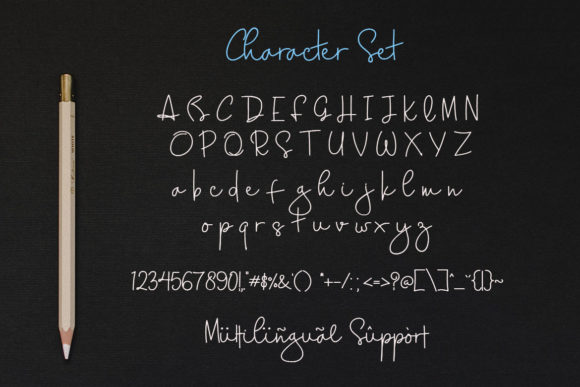 Character Set
A B C D E F G H I J K L M N
O P Q R S T U V W X Y Z
a b c d e f g h i j k l m n
o p q r s t u v w x y z
1234567890!,"#$%&'() *+-/:;<=>?@[\]^_˘{|}~
Mültilíñguãl Sûppòrt